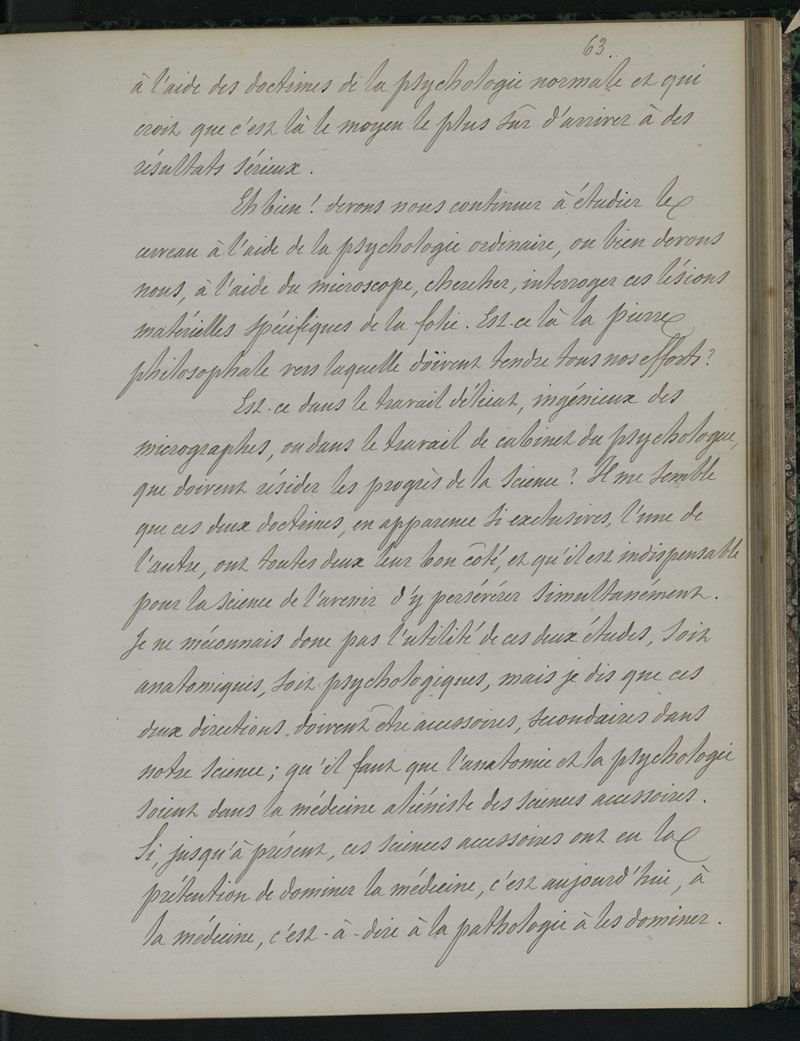 63.
à l'aide des doctrines de la psychologie normale et qui
croit que c'est là le moyen le plus sûr d'arriver à des
résultats sérieux.
Eh bien! devons nous continuer à étudier le
cerveau à l'aide de la psychologie ordinaire, ou bien devons
nous, à l'aide du microscope, chercher, interroger ces lésions
matérielles spécifiques de la folie. Est-ce là la pierre
philosophale vers laquelle doivent tendre tous nos efforts?
Est-ce dans le travail délicat, ingénieux des
micrographes, ou dans le travail de cabinet du psychologue,
que doivent résider les progrès de la science? Il me semble
que ces deux doctrines, en apparence si exclusives, l'une de
l'autre, ont toutes deux leur bon côté, et qu'il est indispensable
pour la science de l'avenir d'y persévérer simultanément.
Je ne méconnais donc pas l'utilité de ces deux études, soit
anatomiques, soit psychologiques, mais je dis que ces
deux directions doivent être accessoires, secondaires dans
notre science; qu'il faut que l'anatomie et la psychologie
soient dans la médecine aliéniste des sciences accessoires.
Si, jusqu'à présent, ces sciences accessoires ont eu la
prétention de dominer la médecine, c'est aujourd'hui, à
la médecine, c'est-à-dire à la pathologie à les dominer.